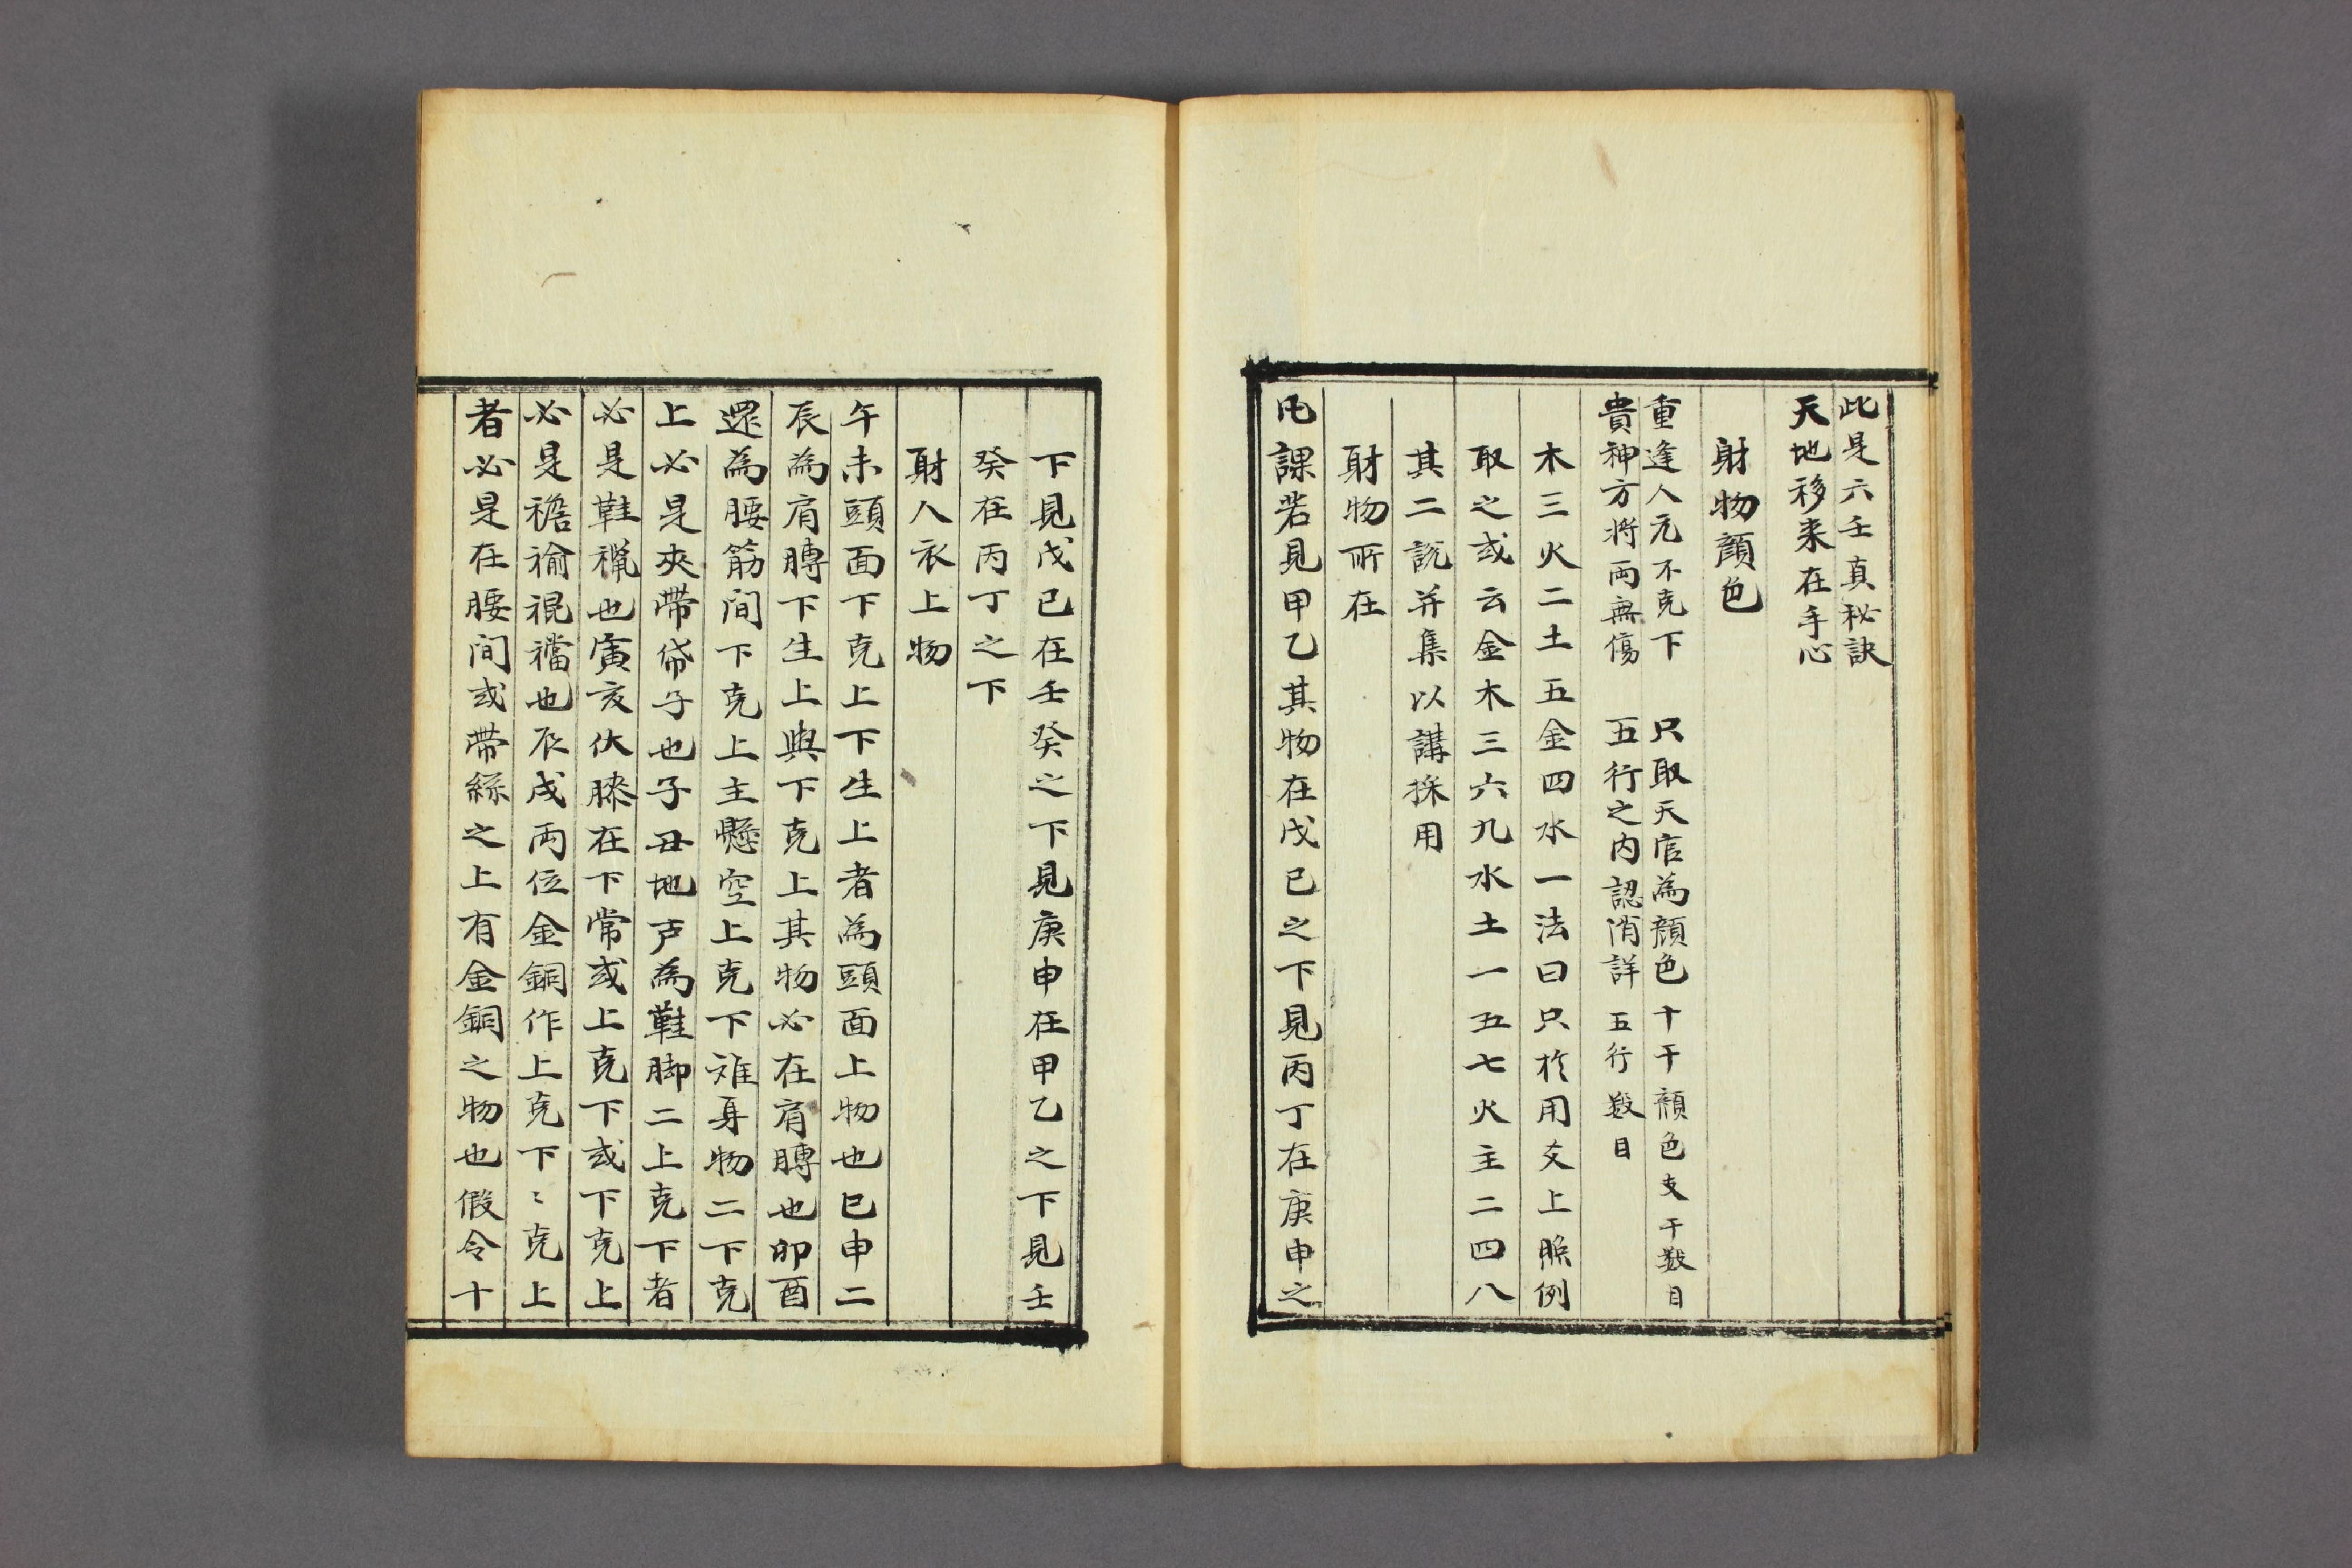 此是六壬真秘訣
天地移来在手心
射物顔色
重逢人元不克下　只取天官為顔色　十干顔色支干数目
貴神方將両無傷　五行之内認消詳　五行数目
木三火二土五金四水一法曰只於用爻上照例
取之或云金木三六九水土一五七火主二四八
其二說并集以講採用
射物所在
凡課若見甲乙其物在戊己之下見丙丁在庚申之
下見戊己在壬癸之下見庚申在甲乙之下見壬
癸在丙丁之下
射人衣上物
午未頭面下克上下生上者為頭面上物也巳申二
辰為肩膊下生上與下克上其物必在肩膊也卯酉
還為腰筋間下克上主懸空上克下难身物二下克
上必是夾帶帒子也子丑地户為鞋脚二上克下者
必是鞋襪也寅亥伏膝在下常或上克下或下克上
必是襜褕裩襠也辰戌両位金銅作上克下〻克上
者必是在腰間或帶絲之上有金銅之物也假令十